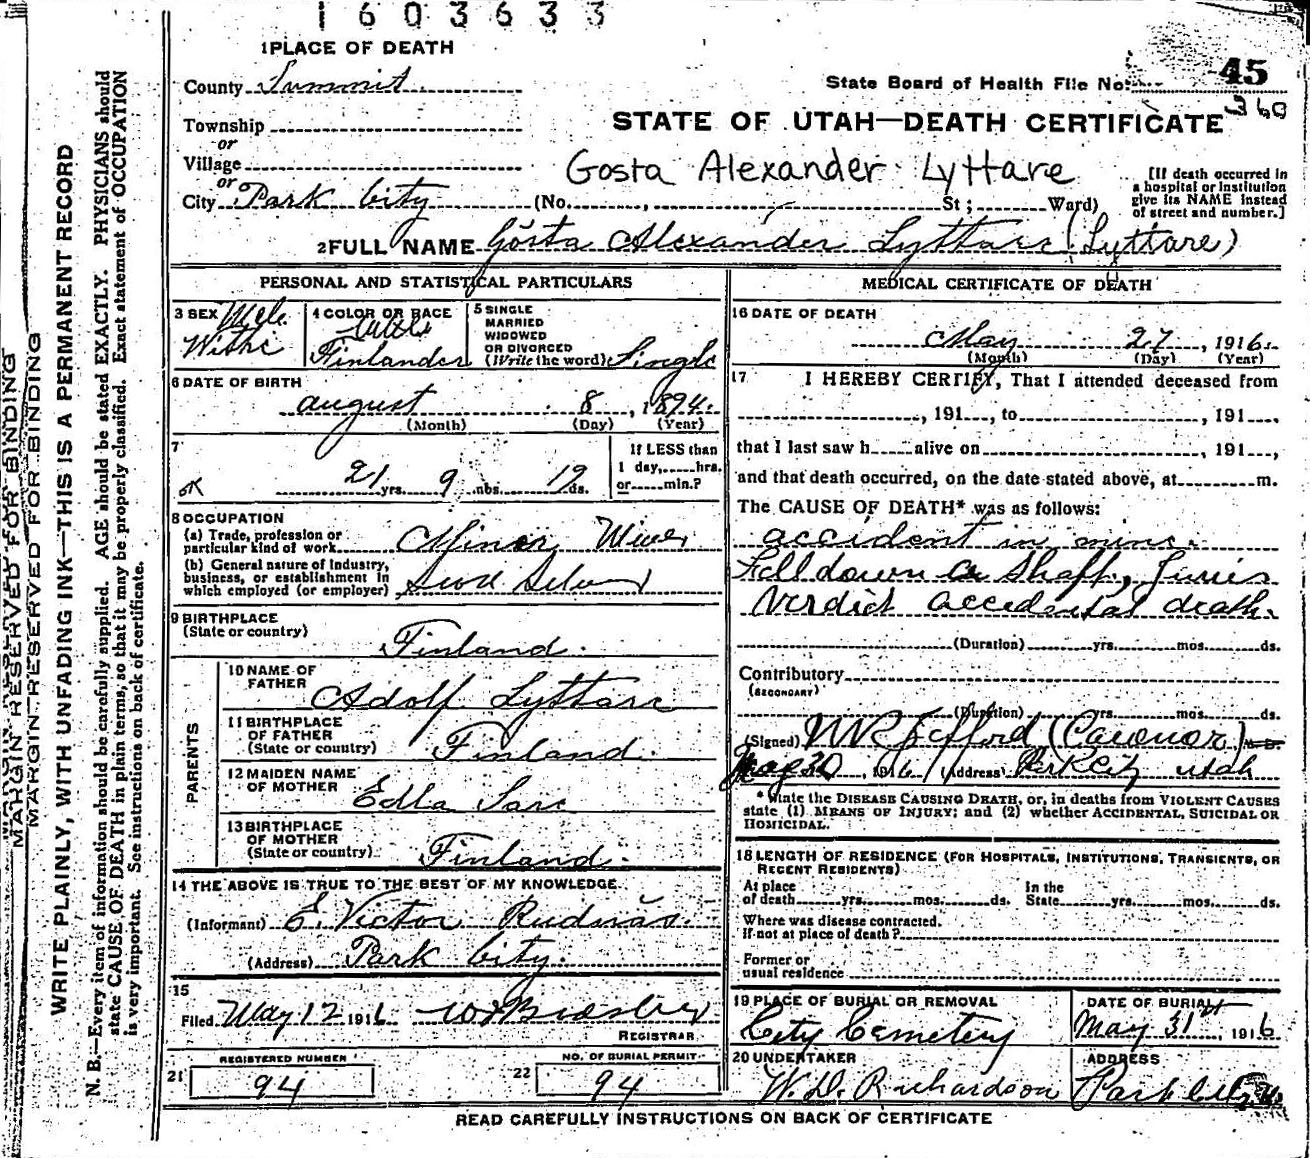 1603633
1 PLACE OF DEATH
County Summit
State Board of Health File No. 45
360
Township
STATE OF UTAH—DEATH CERTIFICATE
or
Village
Gosta Alexander Lyttare
[If death occurred in a hospital or institution give its NAME instead of street and number.]
or
City Park City (No. , St; Ward)
2 FULL NAME Gösta Alexander Lyttare (Lyttare)
PERSONAL AND STATISTICAL PARTICULARS
3 SEX Male
4 COLOR OR RACE
Finlander
5 SINGLE
MARRIED
WIDOWED
OR DIVORCED
(Write the word) Single
6 DATE OF BIRTH
August 8, 1894.
(Month) (Day) (Year)
7
OK 21 yrs. 9 mos. 19 ds.
If LESS than
1 day, hrs.
or min.?
8 OCCUPATION
(a) Trade, profession or
particular kind of work Miner Miner
(b) General nature of Industry,
business, or establishment in
which employed (or employer)
9 BIRTHPLACE
(State or country)
Finland.
PARENTS
10 NAME OF
FATHER Adolf Lyttare
11 BIRTHPLACE
OF FATHER
(State or country) Finland.
12 MAIDEN NAME
OF MOTHER Edla
13 BIRTHPLACE
OF MOTHER
(State or country) Finland.
14 THE ABOVE IS TRUE TO THE BEST OF MY KNOWLEDGE.
(Informant) E. Victor Rudnäs.
(Address) Park City.
15
Filed May 12 1916
REGISTRAR
REGISTERED NUMBER
21 94
NO. OF BURIAL PERMIT
22 94
MEDICAL CERTIFICATE OF DEATH
16 DATE OF DEATH
May 27, 1916.
(Month) (Day) (Year)
17 I HEREBY CERTIFY, That I attended deceased from
, 191 , to , 191 ,
that I last saw h alive on , 191 ,
and that death occurred, on the date stated above, at m.
The CAUSE OF DEATH* was as follows:
accident in mine.
Fell down a Shaft, Juries
Verdict accidental death.
(Duration) yrs. mos. ds.
Contributory
(SECONDARY)
(Duration) yrs. mos. ds.
(Signed)
May 30, 1916 (Address) Park City Utah
*State the DISEASE CAUSING DEATH, or, in deaths from VIOLENT CAUSES
state (1) MEANS OF INJURY; and (2) whether ACCIDENTAL, SUICIDAL OR
HOMICIDAL.
18 LENGTH OF RESIDENCE (FOR HOSPITALS, INSTITUTIONS, TRANSIENTS, OR
RECENT RESIDENTS)
At place
of death yrs. mos. ds.
In the
State yrs. mos. ds.
Where was disease contracted.
If not at place of death?
Former or
usual residence
19 PLACE OF BURIAL OR REMOVAL
City Cemetery
DATE OF BURIAL
May 31st, 1916
20 UNDERTAKER
W. D. Richardson
ADDRESS
Park City
READ CAREFULLY INSTRUCTIONS ON BACK OF CERTIFICATE
MARGIN RESERVED FOR BINDING
MARGIN RESERVED FOR BINDING
WRITE PLAINLY, WITH UNFADING INK—THIS IS A PERMANENT RECORD
N. B.—Every item of information should be carefully supplied. AGE should be stated EXACTLY. PHYSICIANS should
state CAUSE OF DEATH in plain terms, so that it may be properly classified. Exact statement of OCCUPATION
is very important. See instructions on back of certificate.